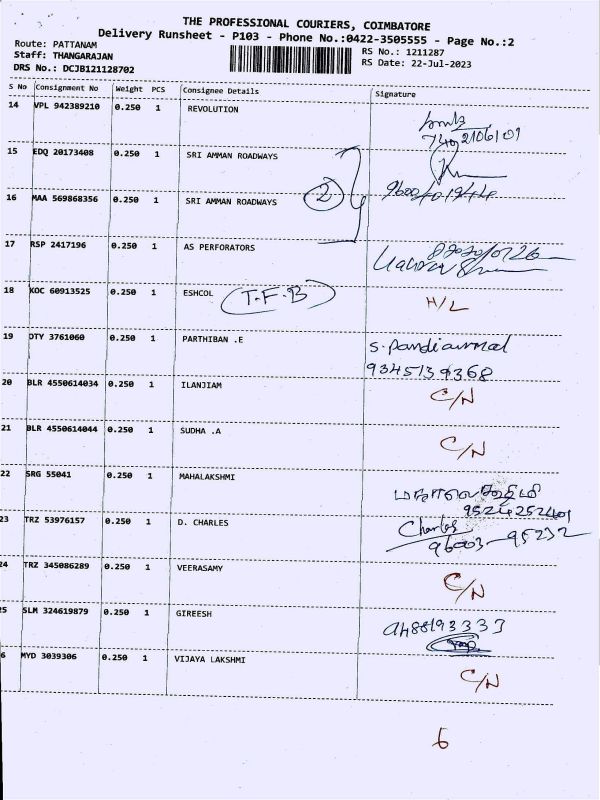 THE PROFESSIONAL COURIERS, COIMBATORE
Delivery Runsheet - P103 - Phone No.:0422-3505555 - Page No.:2
Route: PATTANAM
Staff: THANGARAJAN
DRS No.: DCJB121128702
RS No.: 1211287
RS Date: 22-Jul-2023
S No Consignment No Weight PCS Consignee Details Signature
14 VPL 942389210 0.250 1 REVOLUTION
15 EDQ 20173408 0.250 1 SRI AMMAN ROADWAYS
2
16 MAA 569868356 0.250 1 SRI AMMAN ROADWAYS
17 RSP 2417196 0.250 1 AS PERFORATORS
18 KOC 60913525 0.250 1 ESHCOL T.F.B H/L
19 DTY 3761060 0.250 1 PARTHIBAN .E S.Pandiammal
9345139368
20 BLR 4550614034 0.250 1 ILANJIAM C/N
21 BLR 4550614044 0.250 1 SUDHA .A C/N
22 SRG 55041 0.250 1 MAHALAKSHMI
9524252401
23 TRZ 53976157 0.250 1 D. CHARLES Charles
96003-95232
24 TRZ 345086289 0.250 1 VEERASAMY C/N
25 SLM 324619879 0.250 1 GIREESH
6 MYD 3039306 0.250 1 VIJAYA LAKSHMI C/N
6